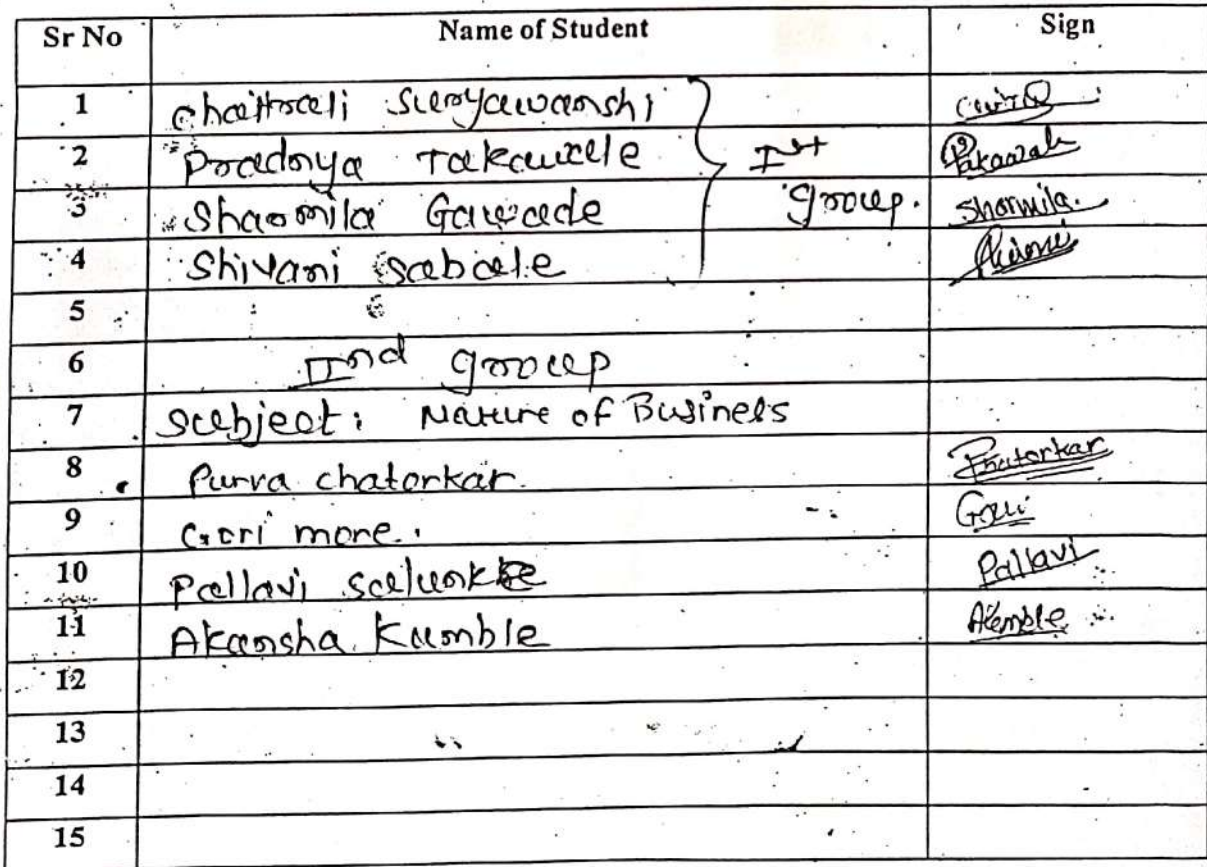 Sr No Name of Student Sign
1 Chaittrali Suryawanshi
2 Pradnya Takawale Ist Takawale
3 Sharmila Gawade group. Sharmila.
4 Shivani Sabale Shivani
5
6 IInd group
7 Subject: Nature of Business
8 Purva Chatorkar. Pchatorkar
9 Gori more. Gouri
10 Pallavi Salunkhe Pallavi
11 Akansha Kamble AKamble
12
13
14
15